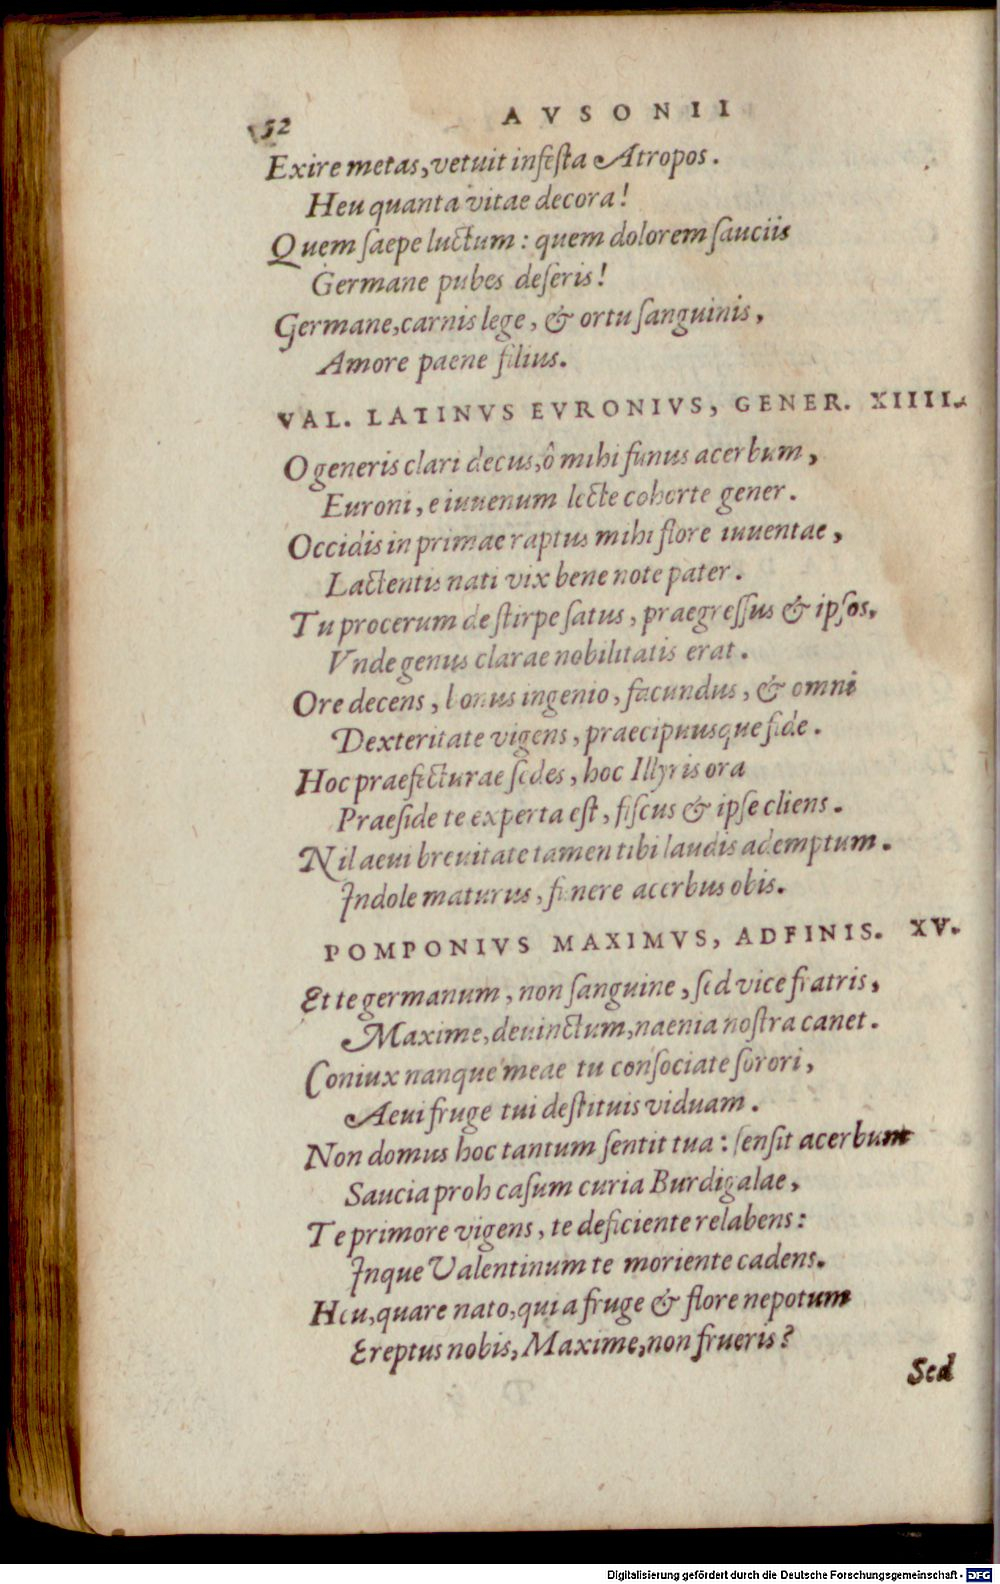 52 AVSONII
Exire metas, vetuit infesta Atropos.
Heu quanta vitae decora!
Quem saepe luctum: quem dolorem sauciis
Germane pubes deseris!
Germane, carnis lege, & ortu sanguinis,
Amore paene filius.
VAL. LATINVS EVRONIVS, GENER. XIIII.
O generis clari decus, ô mihi funus acerbum,
Euroni, e iuuenum lecte cohorte gener.
Occidis in primae raptus mihi flore iuuentae,
Lactentis nati vix bene note pater.
Tu procerum de stirpe satus, praegressus & ipsos,
Vnde genus clarae nobilitatis erat.
Ore decens, bonus ingenio, facundus, & omni
Dexteritate vigens, praecipuusque fide.
Hoc praefecturae sedes, hoc Illyris ora
Praeside te experta est, fiscus & ipse cliens.
Nil aeui breuitate tamen tibi laudis ademptum.
Indole maturus, funere acerbus obis.
POMPONIVS MAXIMVS, ADFINIS. XV.
Et te germanum, non sanguine, sed vice fratris,
Maxime, deuinctum, naenia nostra canet.
Coniux nanque meae tu consociate sorori,
Aeui fruge tui destituis viduam.
Non domus hoc tantum sentit tua: sensit acerbum
Saucia proh casum curia Burdigalae,
Te primore vigens, te deficiente relabens:
Inque Valentinum te moriente cadens.
Heu, quare nato, qui a fruge & flore nepotum
Ereptus nobis, Maxime, non frueris?
Sed
Digitalisierung gefördert durch die Deutsche Forschungsgemeinschaft - DFG